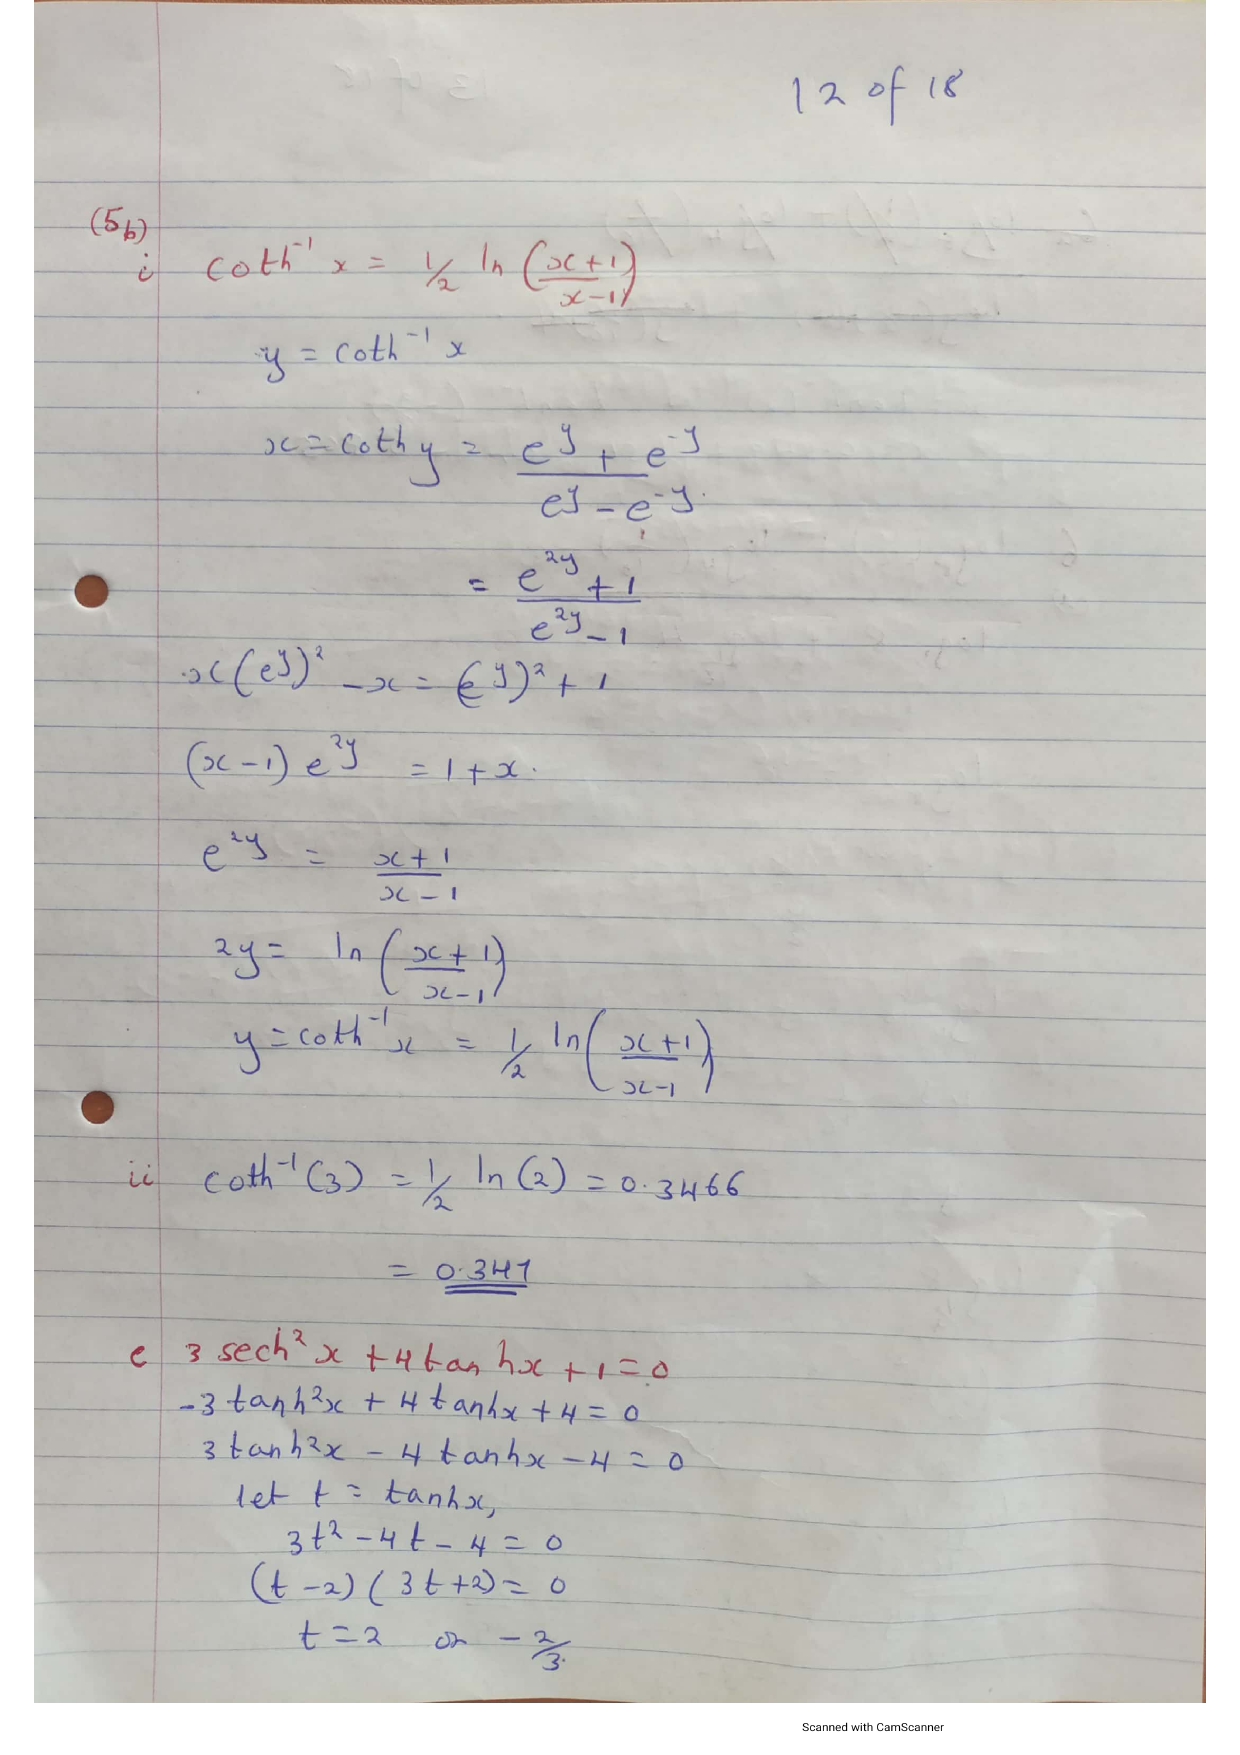 12 of 18
(5b)
i coth⁻¹ x = 1/2 ln (x+1 / x-1)
y = coth⁻¹ x
x = coth y = e^y + e^-y / e^y - e^-y
= e^2y + 1 / e^2y - 1
x(e^y)² - x = (e^y)² + 1
(x-1) e^2y = 1 + x.
e^2y = x+1 / x-1
2y = ln (x+1 / x-1)
y = coth⁻¹x = 1/2 ln (x+1 / x-1)
ii coth⁻¹(3) = 1/2 ln(2) = 0.3466
= 0.347
c 3 sech² x + 4 tanhx + 1 = 0
-3 tanh²x + 4 tanhx + 4 = 0
3 tanh²x - 4 tanhx - 4 = 0
let t = tanhx,
3t² - 4t - 4 = 0
(t - 2)(3t + 2) = 0
t = 2 or - 2/3.
Scanned with CamScanner